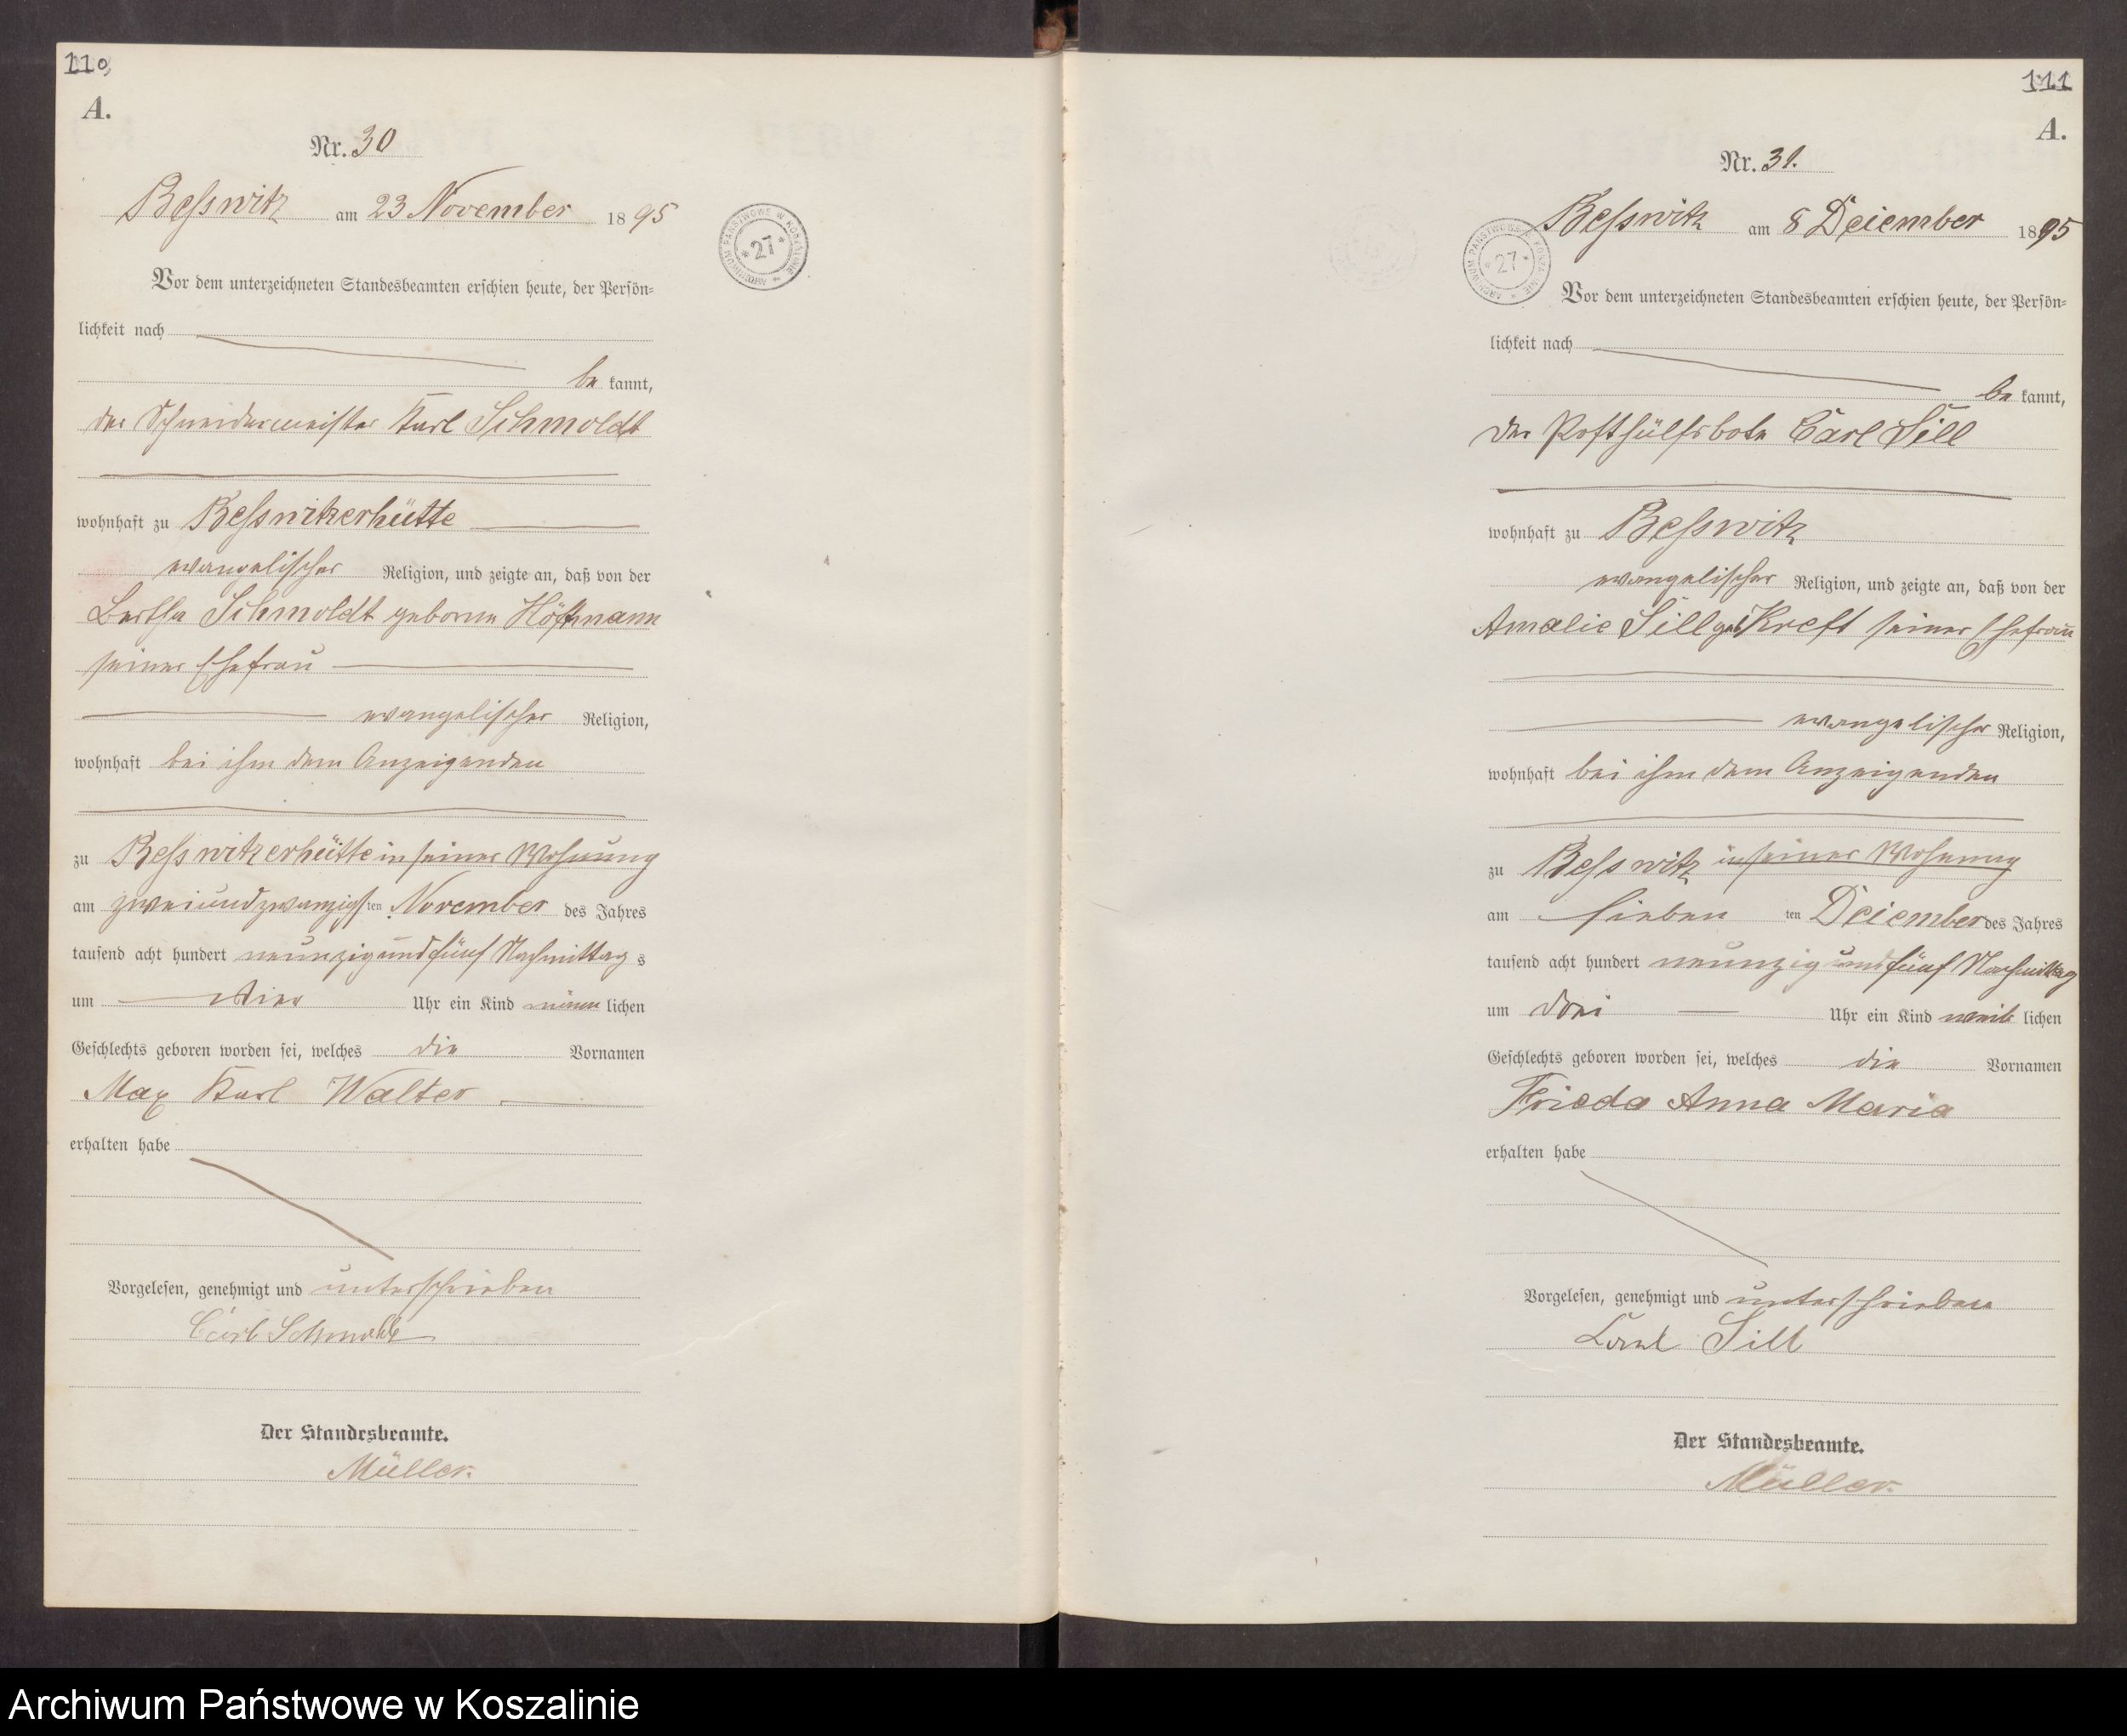 110
A.
Nr. 30
Beßwitz am 23 November 1895
ARCHIWUM PAŃSTWOWE W KOSZALINIE * 27 *
Vor dem unterzeichneten Standesbeamten erschien heute, der Persön=
lichkeit nach
be kannt,
der Schneidermeister Karl Schmoldt
wohnhaft zu Beßwitzerhütte
evangelischer Religion, und zeigte an, daß von der
Bertha Schmoldt geborne Höftmann
seiner Ehefrau
evangelischer Religion,
wohnhaft bei ihm dem Anzeigenden
zu Beßwitzerhütte in seiner Wohnung
am zweiundzwanzigsten November des Jahres
tausend acht hundert neunzig und fünf Nachmittag s
um vier Uhr ein Kind männ lichen
Geschlechts geboren worden sei, welches die Vornamen
Max Karl Walter
erhalten habe
Vorgelesen, genehmigt und unterschrieben
Carl Schmoldt
Der Standesbeamte.
Müller.
111
A.
Nr. 31.
Beßwitz am 8 Deiember 1895
ARCHIWUM PAŃSTWOWE W KOSZALINIE * 27 *
Vor dem unterzeichneten Standesbeamten erschien heute, der Persön=
lichkeit nach
be kannt,
der Posthülfsbote Carl Sill
wohnhaft zu Beßwitz
evangelischer Religion, und zeigte an, daß von der
Amalie Sill geb Kreft seiner Ehefrau
evangelischer Religion,
wohnhaft bei ihm dem Anzeigenden
zu Beßwitz in seiner Wohnung
am sieben ten Deiember des Jahres
tausend acht hundert neunzig und fünf Nachmittag
um drei Uhr ein Kind weib lichen
Geschlechts geboren worden sei, welches die Vornamen
Frieda Anna Maria
erhalten habe
Vorgelesen, genehmigt und unterschrieben
Carl Sill
Der Standesbeamte.
Müller.
Archiwum Państwowe w Koszalinie